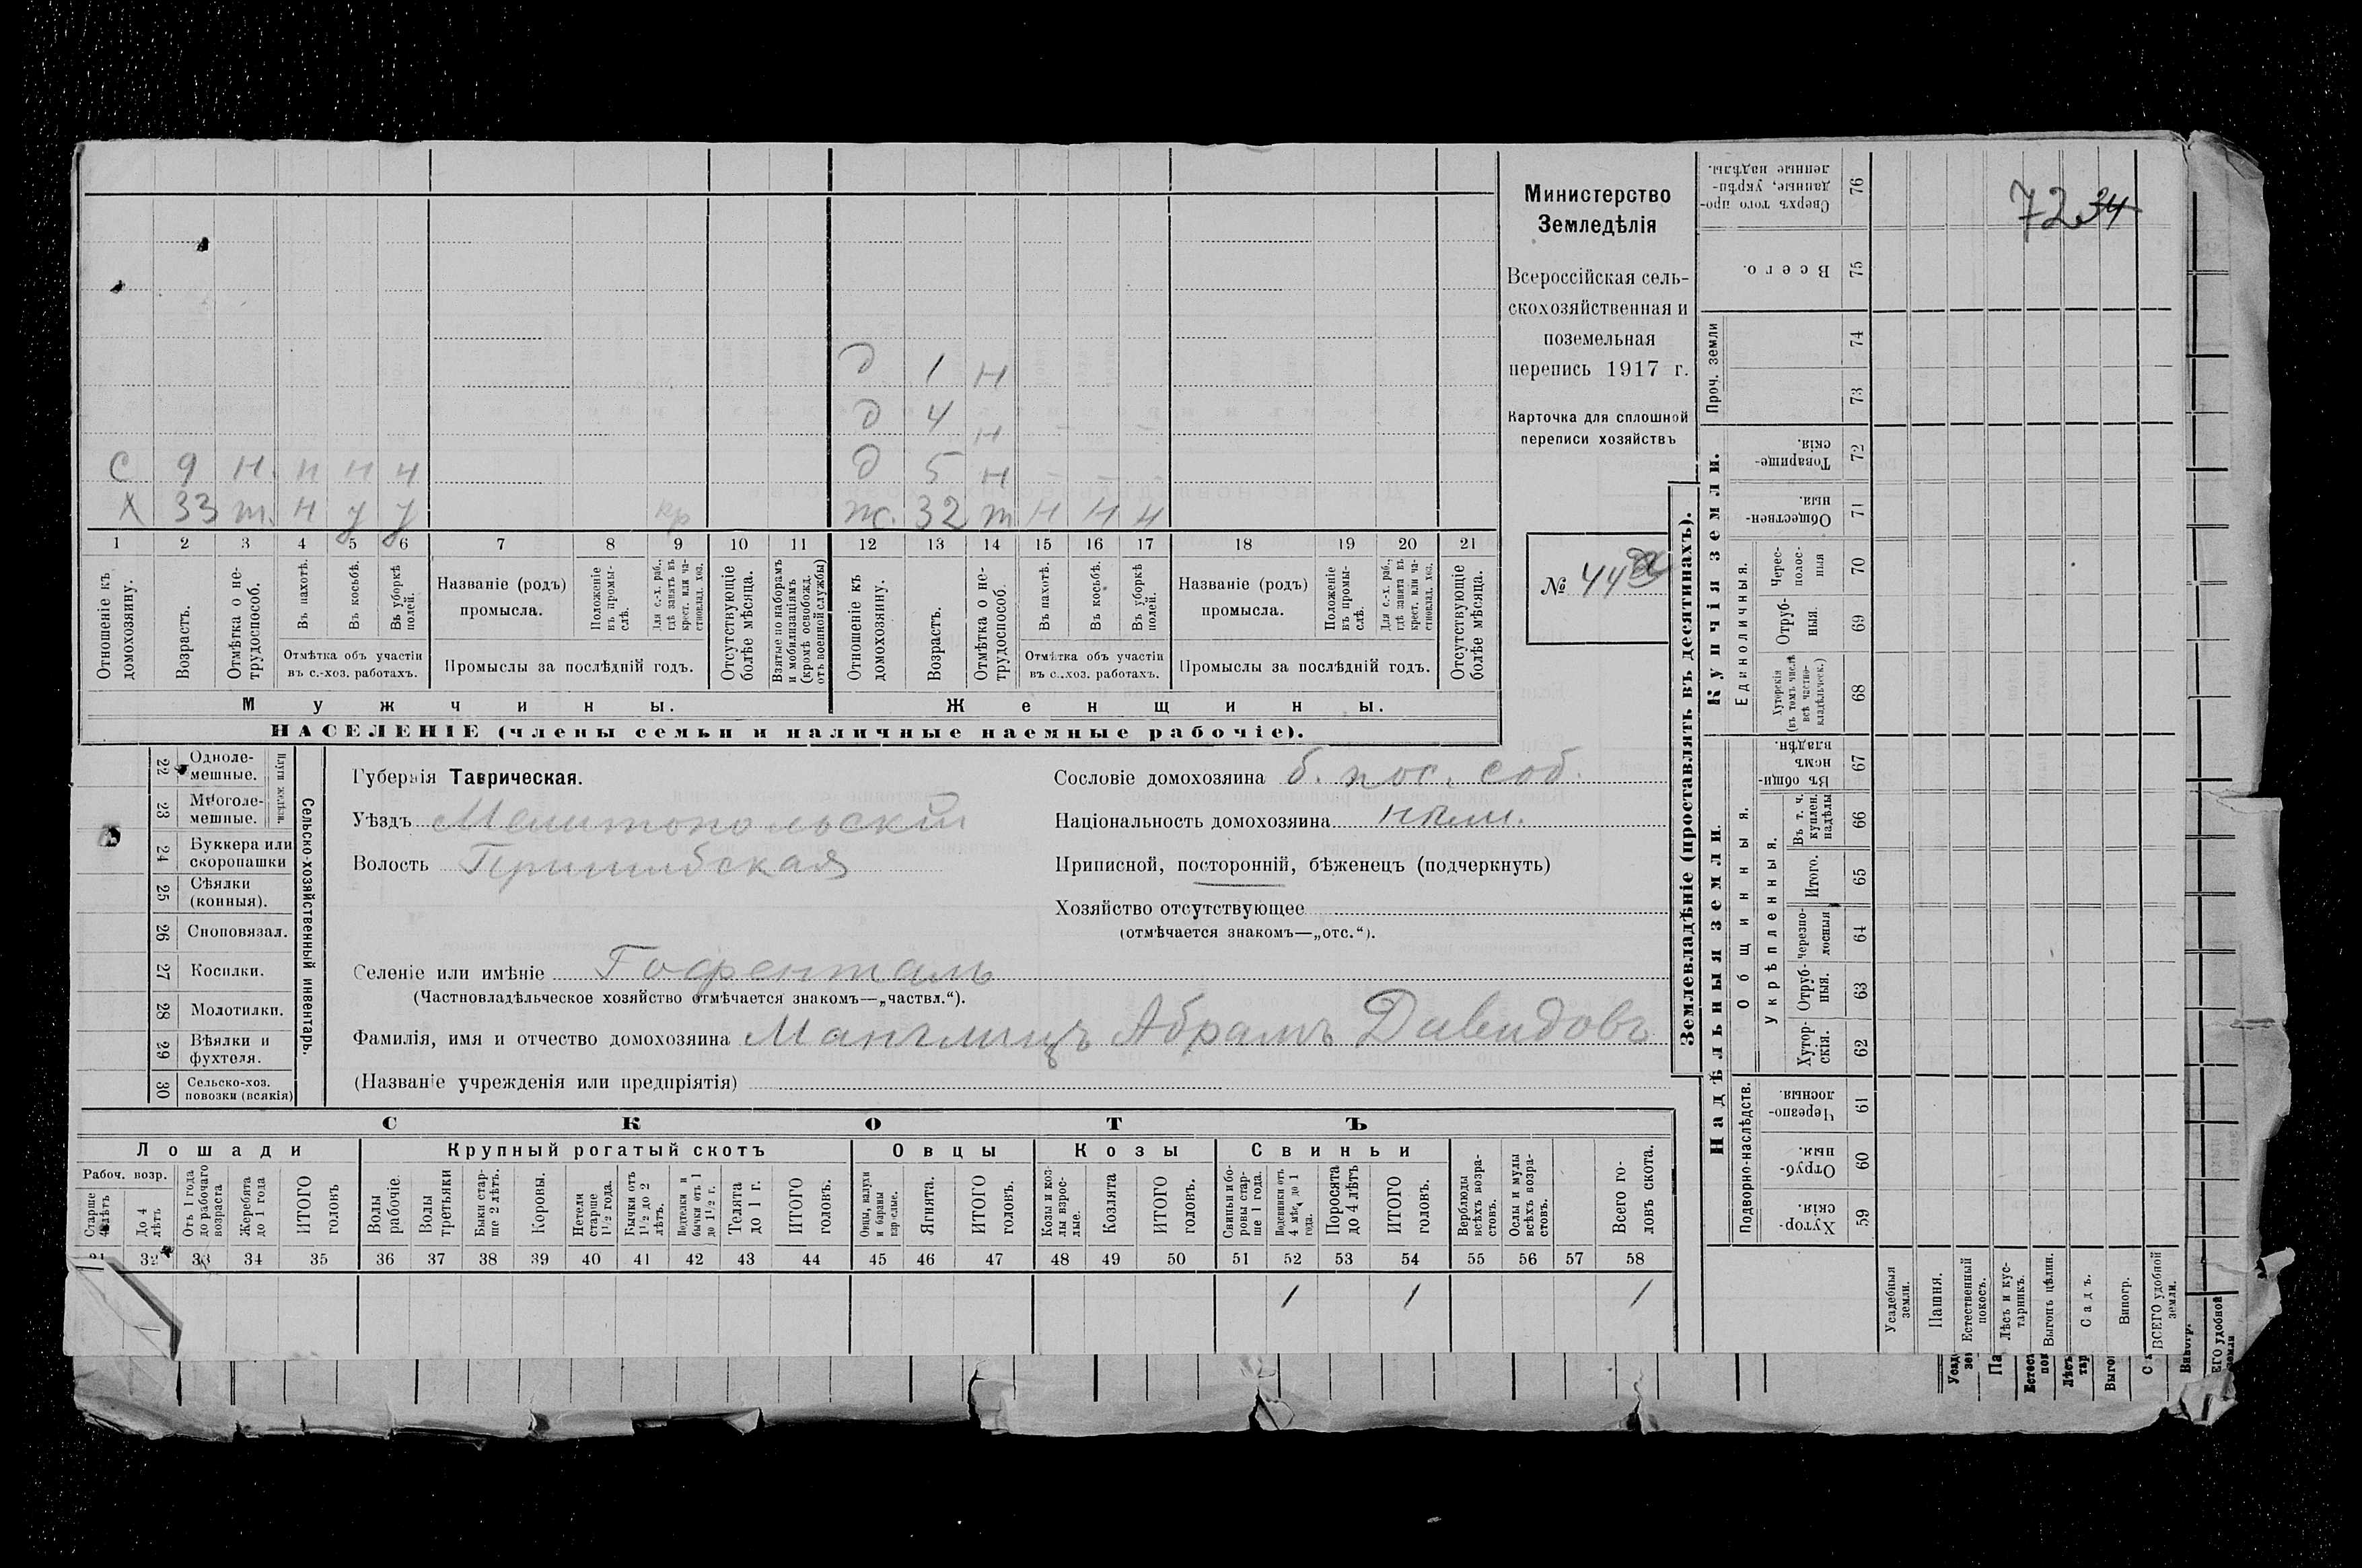 д 1 н
д 4 н — —
С 9 н. н н н д 5 н — —
Х 33 т. н у у кр ж. 32 т н н н
1 2 3 4 5 6 7 8 9 10 11 12 13 14 15 16 17 18 19 20 21
Отношеніе къ домохозяину.
Возрастъ.
Отмѣтка о не-трудоспособ.
Въ пахотѣ.
Въ косьбѣ.
Въ уборкѣ полей.
Отмѣтка объ участіи
въ с.-хоз. работахъ.
Названіе (родъ)
промысла.
Положеніе въ промы-слѣ.
Для с.-х. раб., гдѣ занятъ въ крест. или ча-стновлад. хоз.
Промыслы за послѣдній годъ.
Отсутствующіе болѣе мѣсяца.
Взятые по наборамъ и мобилизаціямъ (кромѣ освобожд. отъ военной службы)
Отношеніе къ домохозяину.
Возрастъ.
Отмѣтка о не-трудоспособ.
Въ пахотѣ.
Въ косьбѣ.
Въ уборкѣ полей.
Отмѣтка объ участіи
въ с..хоз. работахъ.
Названіе (родъ)
промысла.
Положеніе въ промы-слѣ.
Для с.-х. раб., гдѣ занята въ крест. или ча-стновлад. хоз.
Промыслы за послѣдній годъ.
Отсутствующіе болѣе мѣсяца.
Мужчины. Женщины.
НАСЕЛЕНІЕ (члены семьи и наличные наемные рабочіе).
Министерство
Земледѣлія
Всероссійская сель-
скохозяйственная и
поземельная
перепись 1917 г.
Карточка для сплошной
переписи хозяйствъ
№ 44
22 Одноле-мешные.
23 Многоле-мешные.
Плуги желѣзн.
24 Буккера или скоропашки
25 Сѣялки (конныя).
26 Сноповязал.
27 Косилки.
28 Молотилки.
29 Вѣялки и фухтеля.
30 Сельско-хоз. повозки (всякія)
Сельско-хозяйственный инвентарь.
Губернія Таврическая.
Уѣздъ Мелитопольскій
Волость Пришибская
Сословіе домохозяина б. пос. соб.
Національность домохозяина нѣм.
Приписной, посторонній, бѣженецъ (подчеркнуть)
Хозяйство отсутствующее
(отмѣчается знакомъ—„отс.“).
Селеніе или имѣніе Гофенталь
(Частновладѣльческое хозяйство отмѣчается знакомъ—„частвл.“).
Фамилія, имя и отчество домохозяина Манглицъ Абрамъ Давидовъ
(Названіе учрежденія или предпріятія)
СКОТЪ
Лошади Крупный рогатый скотъ Овцы Козы Свиньи
Рабоч. возр.
Старше 4 лѣтъ
До 4 лѣтъ
Отъ 1 года до рабочаго возраста
Жеребята до 1 года
ИТОГО головъ
Волы рабочіе.
Волы третьяки
Быки стар-ше 2 лѣтъ.
Коровы.
Нетели старше 1½ года.
Бычки отъ 1½ до 2 лѣтъ.
Подтелки и бычки отъ 1 до 1½ г.
Телята до 1 г.
ИТОГО головъ.
Овцы, валухи и бараны взрослые.
Ягнята.
ИТОГО головъ.
Козы и коз-лы взрос-лые.
Козлята
ИТОГО головъ.
Свиньи и бо-ровы стар-ше 1 года.
Подсвинки отъ 4 мѣс. до 1 года.
Поросята до 4 лѣтъ
ИТОГО головъ.
Верблюды всѣхъ возра-стовъ.
Ослы и мулы всѣхъ возра-стовъ.
Всего го-ловъ скота.
31 32 33 34 35 36 37 38 39 40 41 42 43 44 45 46 47 48 49 50 51 52 53 54 55 56 57 58
1 1 1
7234
Землевладѣніе (проставлять въ десятинахъ).
Купчія земли.
Надѣльныя земли.
Сверхъ того про-данные, укрѣп-ленные надѣлы. 76
Всего. 75
Проч. земли 74 73
Товарище-скія. 72
Обществен-ныя. 71
Единоличныя.
Черес-полос-ныя 70
Отруб-ныя. 69
Хуторскія (въ томъ числѣ всѣ частно-владѣльческ.) 68
Общинныя.
Въ общи-номъ владѣн. 67
Укрѣпленныя.
Въ т. ч. куплен. надѣлы 66
Итого. 65
Черезпо-лосныя 64
Отруб-ныя. 63
Хутор-скія. 62
Подворно-наслѣдств.
Черезпо-лосныя. 61
Отруб-ныя. 60
Хутор-скія. 59
Усадебныя земли.
Пашня.
Естественный покосъ.
Лѣсъ и кус-тарникъ.
Выгонъ цѣлин.
Садъ.
Виногр.
ВСЕГО удобной земли.